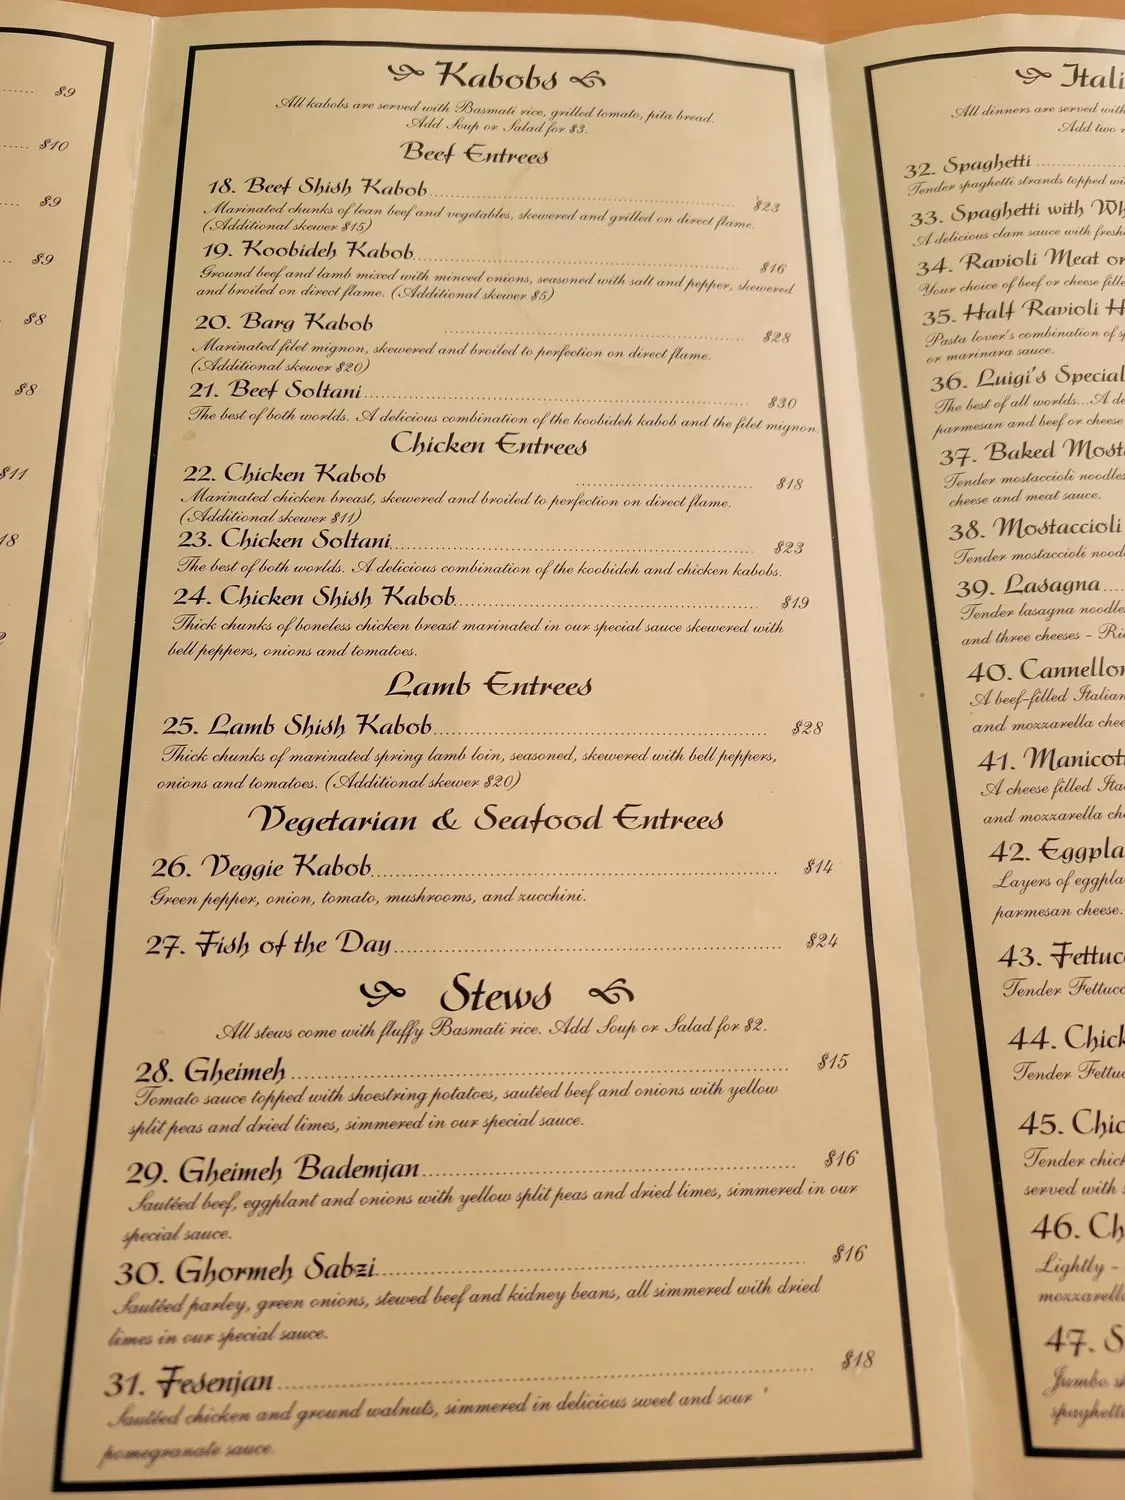 $9
$10
$9
$9
$8
$8
$11
18
2
Kabobs
All kabobs are served with Basmati rice, grilled tomato, pita bread.
Add Soup or Salad for $3.
Beef Entrees
18. Beef Shish Kabob $23
Marinated chunks of lean beef and vegetables, skewered and grilled on direct flame.
(Additional skewer $15)
19. Koobideh Kabob $16
Ground beef and lamb mixed with minced onions, seasoned with salt and pepper, skewered
and broiled on direct flame. (Additional skewer $5)
20. Barg Kabob $28
Marinated filet mignon, skewered and broiled to perfection on direct flame.
(Additional skewer $20)
21. Beef Soltani $30
The best of both worlds. A delicious combination of the koobideh kabob and the filet mignon.
Chicken Entrees
22. Chicken Kabob $18
Marinated chicken breast, skewered and broiled to perfection on direct flame.
(Additional skewer $11)
23. Chicken Soltani $23
The best of both worlds. A delicious combination of the koobideh and chicken kabobs.
24. Chicken Shish Kabob $19
Thick chunks of boneless chicken breast marinated in our special sauce skewered with
bell peppers, onions and tomatoes.
Lamb Entrees
25. Lamb Shish Kabob $28
Thick chunks of marinated spring lamb loin, seasoned, skewered with bell peppers,
onions and tomatoes. (Additional skewer $20)
Vegetarian & Seafood Entrees
26. Veggie Kabob $14
Green pepper, onion, tomato, mushrooms, and zucchini.
27. Fish of the Day $24
Stews
All stews come with fluffy Basmati rice. Add Soup or Salad for $2.
28. Gheimeh $15
Tomato sauce topped with shoestring potatoes, sautéed beef and onions with yellow
split peas and dried limes, simmered in our special sauce.
29. Gheimeh Bademjan $16
Sautéed beef, eggplant and onions with yellow split peas and dried limes, simmered in our
special sauce.
30. Ghormeh Sabzi $16
Sautéed parley, green onions, stewed beef and kidney beans, all simmered with dried
limes in our special sauce.
31. Fesenjan $18
Sautéed chicken and ground walnuts, simmered in delicious sweet and sour
pomegranate sauce.
Itali
All dinners are served with
Add two
32. Spaghetti
Tender spaghetti strands topped wi
33. Spaghetti with Wh
A delicious clam sauce with fresh
34. Ravioli Meat or
Your choice of beef or cheese fille
35. Half Ravioli H
Pasta lover's combination of sp
or marinara sauce.
36. Luigi's Special
The best of all worlds...A de
parmesan and beef or cheese
37. Baked Most
Tender mostaccioli noodles
cheese and meat sauce.
38. Mostaccioli
Tender mostaccioli nood
39. Lasagna
Tender lasagna noodle
and three cheeses - Ri
40. Cannellon
A beef-filled Italian
and mozzarella chee
41. Manicott
A cheese filled Ita
and mozzarella ch
42. Eggpla
Layers of eggpla
parmesan cheese.
43. Fettuc
Tender Fettuc
44. Chick
Tender Fettu
45. Chic
Tender chick
served with
46. Ch
Lightly -
mozzarella
47. S
Jumbo s
spaghetti